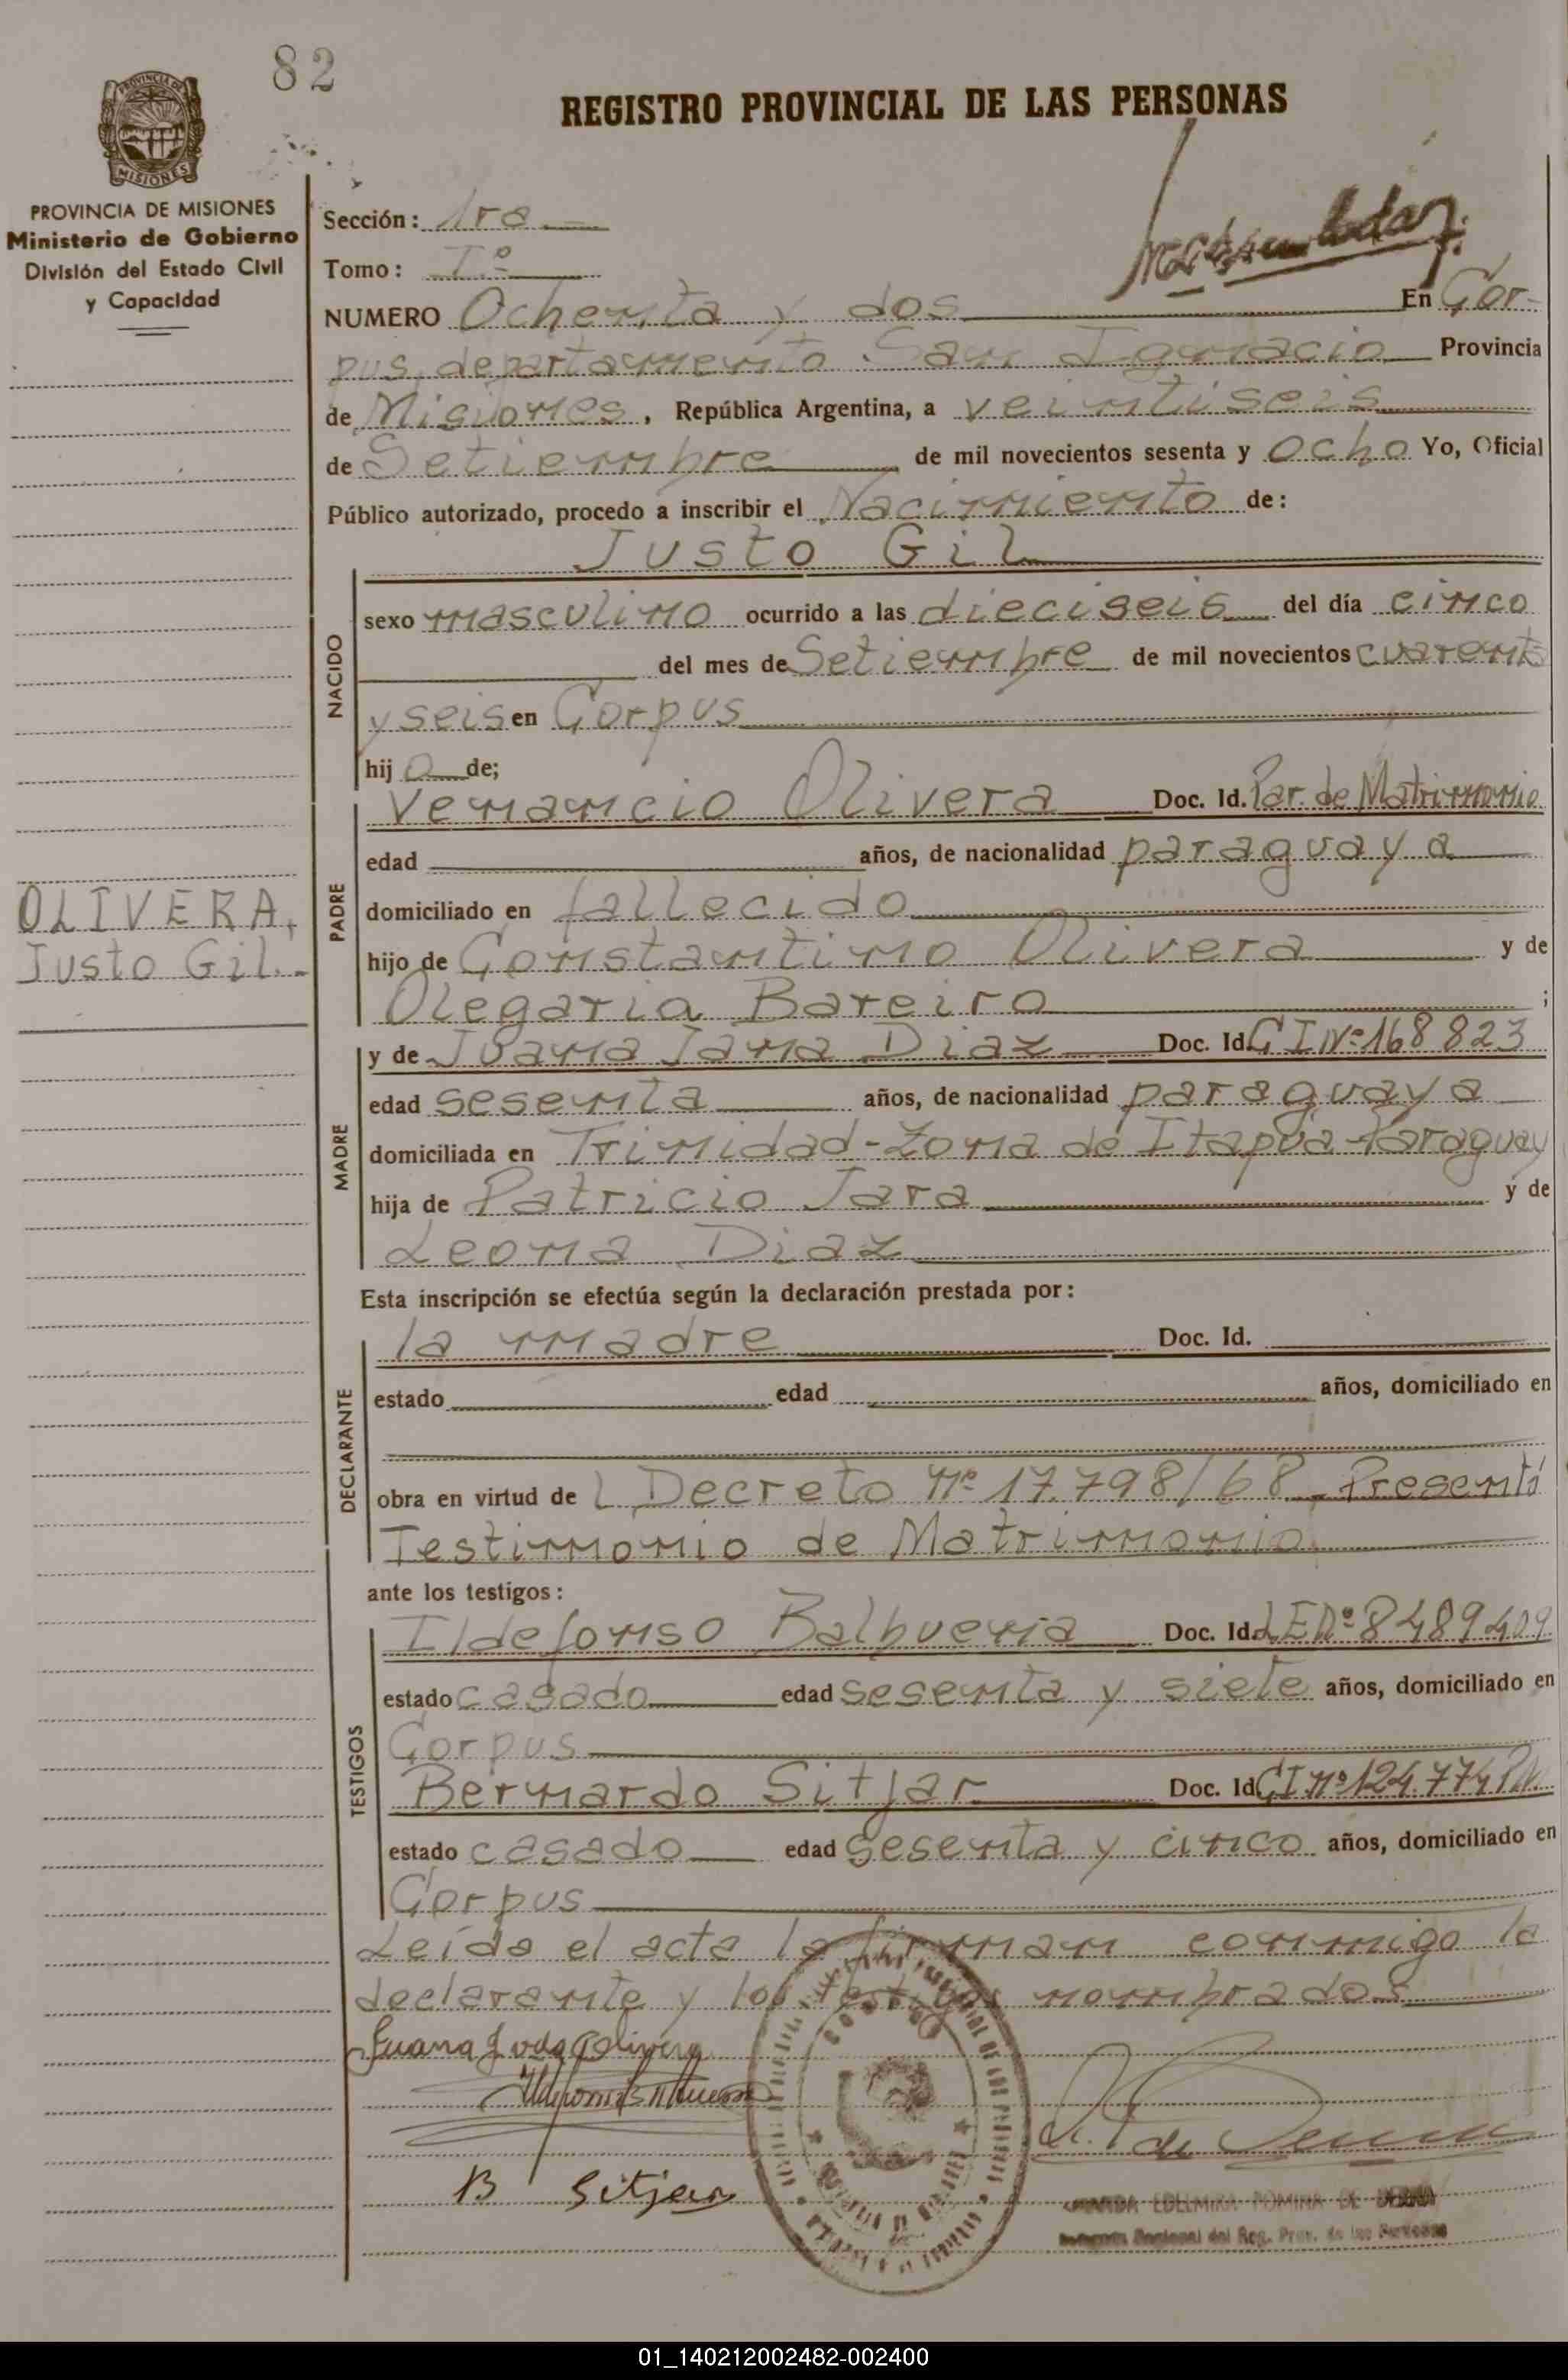 82
REGISTRO PROVINCIAL DE LAS PERSONAS
PROVINCIA DE
MISIONES
PROVINCIA DE MISIONES
Ministerio de Gobierno
División del Estado Civil
y Capacidad
Sección: 1ra
Tomo: Iº
NUMERO Ochenta y dos En Cor-
pus, departamento San Ignacio Provincia
de Misiones, República Argentina, a veintiseis
de Setiembre de mil novecientos sesenta y ocho Yo, Oficial
Público autorizado, procedo a inscribir el Nacimiento de:
Justo Gil
NACIDO
sexo masculino ocurrido a las dieciseis del día cinco
del mes de Setiembre de mil novecientos cuarenta
y seis en Corpus
hij o de;
PADRE
Venancio Olivera Doc. Id. Par. de Matrimonio
edad años, de nacionalidad paraguaya
domiciliado en fallecido
OLIVERA,
Justo Gil.-
hijo de Constantino Olivera y de
Olegaria Bareiro ;
MADRE
y de Juana Jara Diaz Doc. Id. C I Nº 168823
edad sesenta años, de nacionalidad paraguaya
domiciliada en Trinidad-Zona de Itapúa-Paraguay
hija de Patricio Jara y de
Leona Diaz
Esta inscripción se efectúa según la declaración prestada por:
DECLARANTE
la madre Doc. Id.
estado edad años, domiciliado en
obra en virtud de l Decreto nº 17.798/68. Presentó
Testimonio de Matrimonio
ante los testigos:
TESTIGOS
Ildefonso Balbuena Doc. Id. LE nº 8489409
estado casado edad sesenta y siete años, domiciliado en
Corpus
Bernardo Sitjar Doc. Id. CI nº 124.774
estado casado edad sesenta y cinco años, domiciliado en
Corpus
Leída el acta la firman conmigo la
declarante y los testigos nombrados
Juana J vda Olivera
B Sitjar
EDELMIRA ROMINA DE
Regional del Reg. Prov. de las Personas
01_140212002482-002400